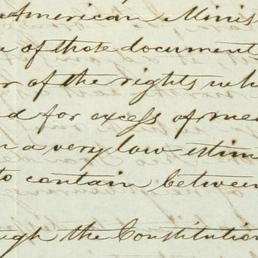 American Minis
e of those document
r of the rights wh
d for excess of me
n a very low estim
to contain between
ugh the Constitution